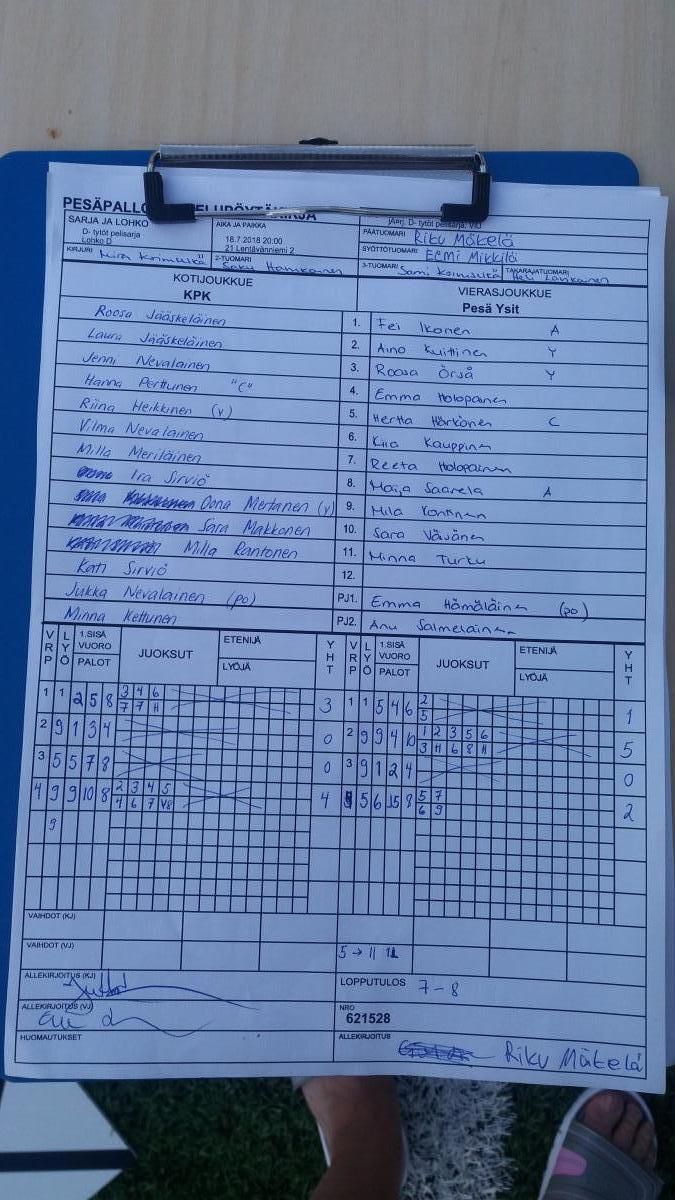 SARJA JA LOHKO
D- tytöt pelisarja
Lohko D
AIKA JA PAIKKA
18.7.2018 20:00
21 Lentävänniemi 2
PÄÄTUOMARI Riku Mäkelä
SYÖTTÖTUOMARI Eemi Mikkilä
KIRJURI
2-TUOMARI
3-TUOMARI
TAKARAJATUOMARI
KOTIJOUKKUE
KPK
VIERASJOUKKUE
Pesä Ysit
Roosa Jääskeläinen 1. Fei Ikonen A
Laura Jääskeläinen 2. Aino Kuittinen Y
Jenni Nevalainen 3. Roosa Örså Y
Hanna Perttunen "C" 4. Emma Holopainen
Riina Heikkinen (v) 5. Hertta Härkönen C
Vilma Nevalainen 6. Kiia Kauppinen
Milla Meriläinen 7. Reeta Holopainen
Ira Sirviö 8. Maija Saarela A
Oona Mertanen (v) 9. Mila Kontinen
Sara Makkonen 10. Sara Väisänen
Milja Rantonen 11. Minna Turku
Kati Sirviö 12.
Jukka Nevalainen (po) PJ1. Emma Hämäläinen (po)
Minna Kettunen PJ2. Anu Salmelainen
VRP LYÖ 1.SISÄ VUORO PALOT JUOKSUT ETENIJÄ LYÖJÄ YHT VRP LYÖ 1.SISÄ VUORO PALOT JUOKSUT ETENIJÄ LYÖJÄ YHT
1 1 2 5 8 3 4 6 3 1 1 5 4 6 2 1
7 7 11 5
2 9 1 3 4 0 2 9 9 4 10 1 2 3 5 6 5
3 11 6 8 11
3 5 5 7 8 0 3 9 1 2 4 0
4 9 9 10 8 2 3 4 5 4 5 6 8 5 7 2
4 6 7 V8 6 9
9
VAIHDOT (KJ)
VAIHDOT (VJ) 5 → 11
ALLEKIRJOITUS (KJ)
LOPPUTULOS 7-8
ALLEKIRJOITUS (VJ)
NRO
621528
HUOMAUTUKSET
ALLEKIRJOITUS Riku Mäkelä